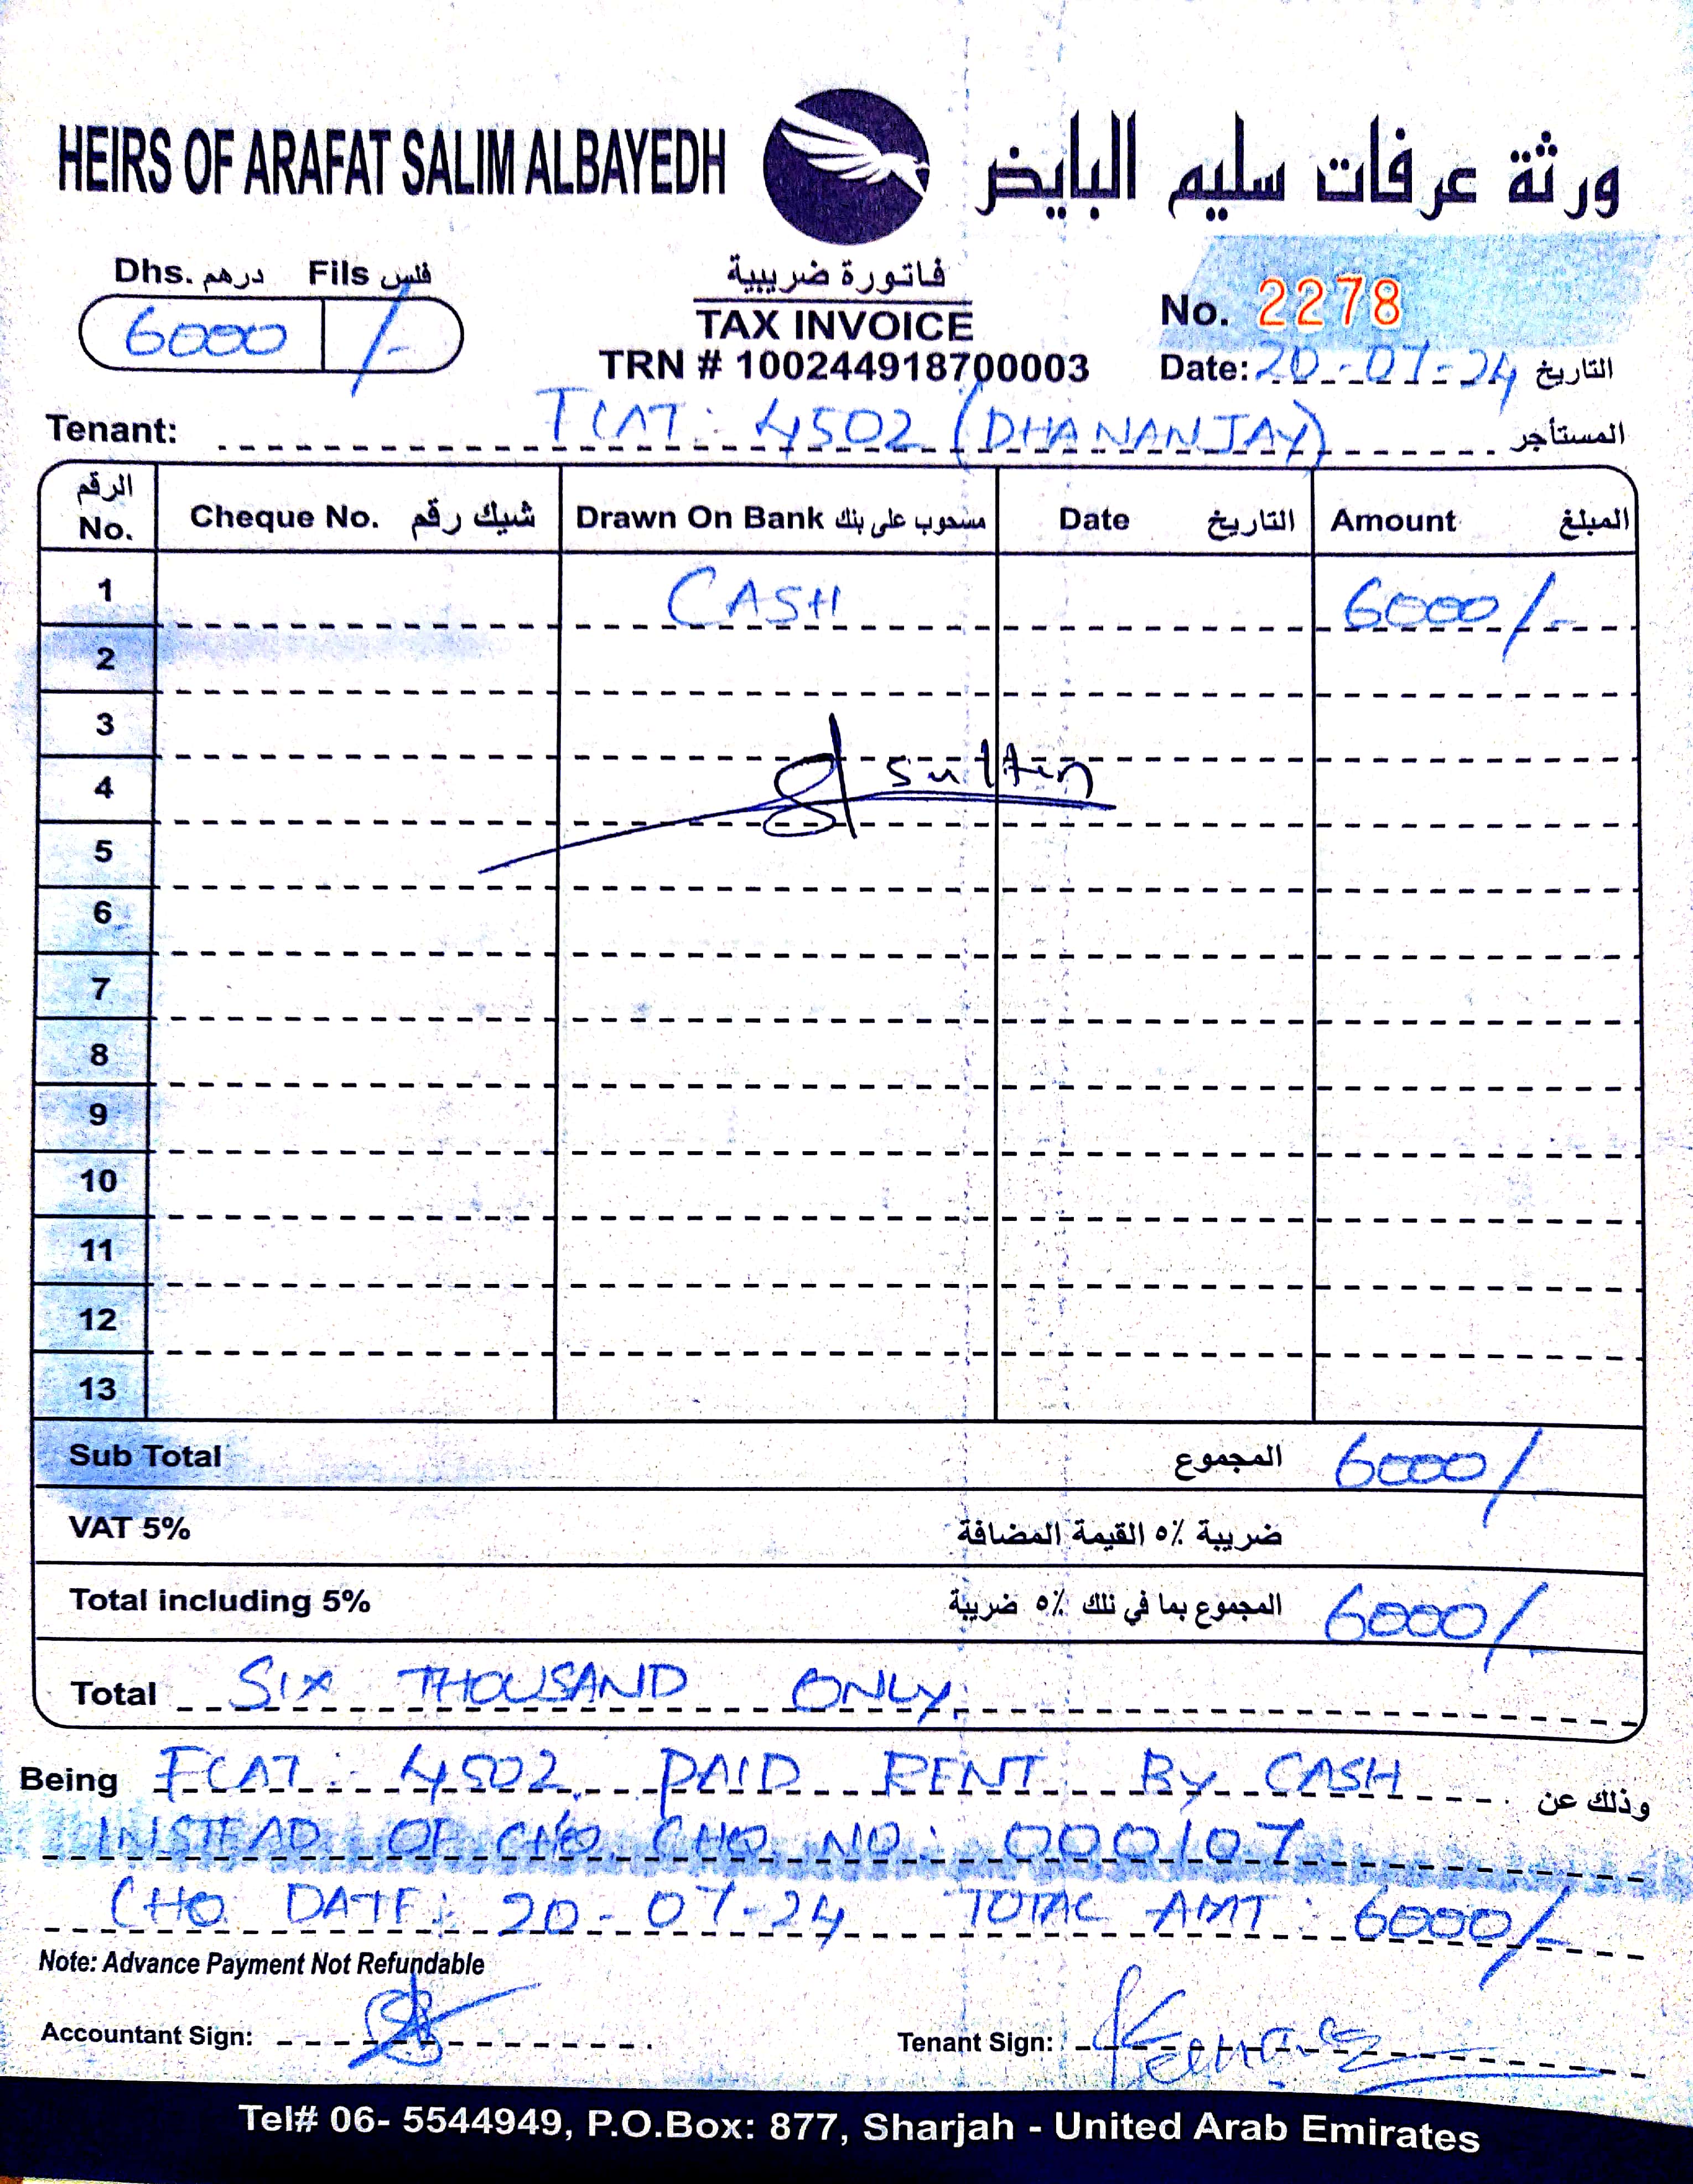 HEIRS OF ARAFAT SALIM ALBAYEDH ورثة عرفات سليم البايض
Dhs. درهم Fils فلس
6000 /-
فاتورة ضريبية
TAX INVOICE
TRN # 100244918700003
No. 2278
Date: 20-07-24 التاريخ
Tenant: FLAT: 4502 (DHANANJAY) المستأجر
الرقم No. Cheque No. شيك رقم Drawn On Bank مسحوب على بنك Date التاريخ Amount المبلغ
1 CASH 6000/-
2
3
4 sultan
5
6
7
8
9
10
11
12
13
Sub Total المجموع 6000/-
VAT 5% ضريبة ٥٪ القيمة المضافة
Total including 5% المجموع بما في ذلك ٥٪ ضريبة 6000/-
Total SIX THOUSAND ONLY.
Being FLAT: 4502 PAID RENT BY CASH وذلك عن
INSTEAD OF CHQ. CHQ NO: 000107
CHQ DATE: 20-07-24 TOTAL AMT: 6000/-
Note: Advance Payment Not Refundable
Accountant Sign: Tenant Sign:
Tel# 06- 5544949, P.O.Box: 877, Sharjah - United Arab Emirates